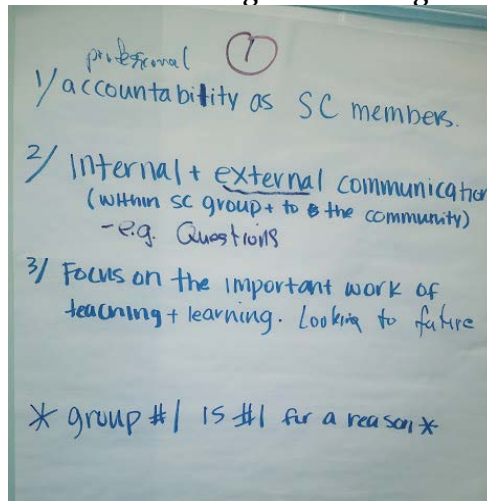 ①
professional
1/ accountability as SC members.
2/ Internal + external communication
(within SC group + to the community)
-e.g. Questions
3/ Focus on the important work of
teaching + learning. Looking to future
* group #1 is #1 for a reason *